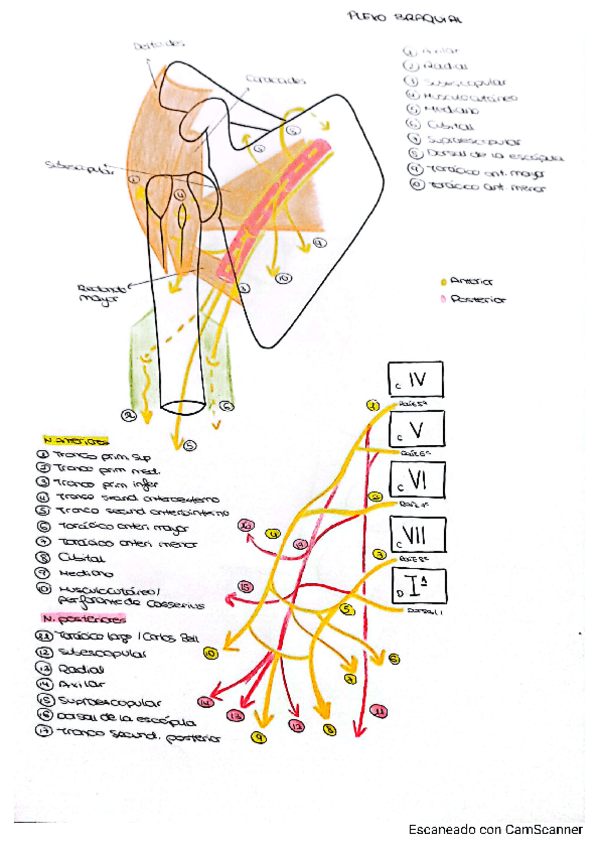 PLEXO BRAQUIAL
Deltoides
Coracoides
① Axilar
② Radial
③ Subescapular
④ Musculocutáneo
⑤ Mediano
⑥ Cubital
⑦ Supraescapular
⑧ Dorsal de la escápula
⑨ Torácico ant. mayor
⑩ Torácico ant. menor
Subescapular
Redondo
mayor
Anterior
Posterior
C IV
Raíz 5ª
C V
Raíz 6ª
C VI
C VII
Raíz 8ª
D Iª
Dorsal 1
N. anteriores
① Tronco prim sup
② Tronco prim med.
③ Tronco prim infer
④ Tronco secund anteroexterno
⑤ Tronco secund anterointerno
⑥ Torácico anteri mayor
⑦ Torácico anteri menor
⑧ Cubital
⑨ Mediano
⑩ Musculocutáneo/
perforante de Casserius
N. posteriores
⑪ Torácico largo / Carlos Bell
⑫ Subescapular
⑬ Radial
⑭ Axilar
⑮ Supraescapular
⑯ Dorsal de la escápula
⑰ Tronco secund. posterior
Escaneado con CamScanner